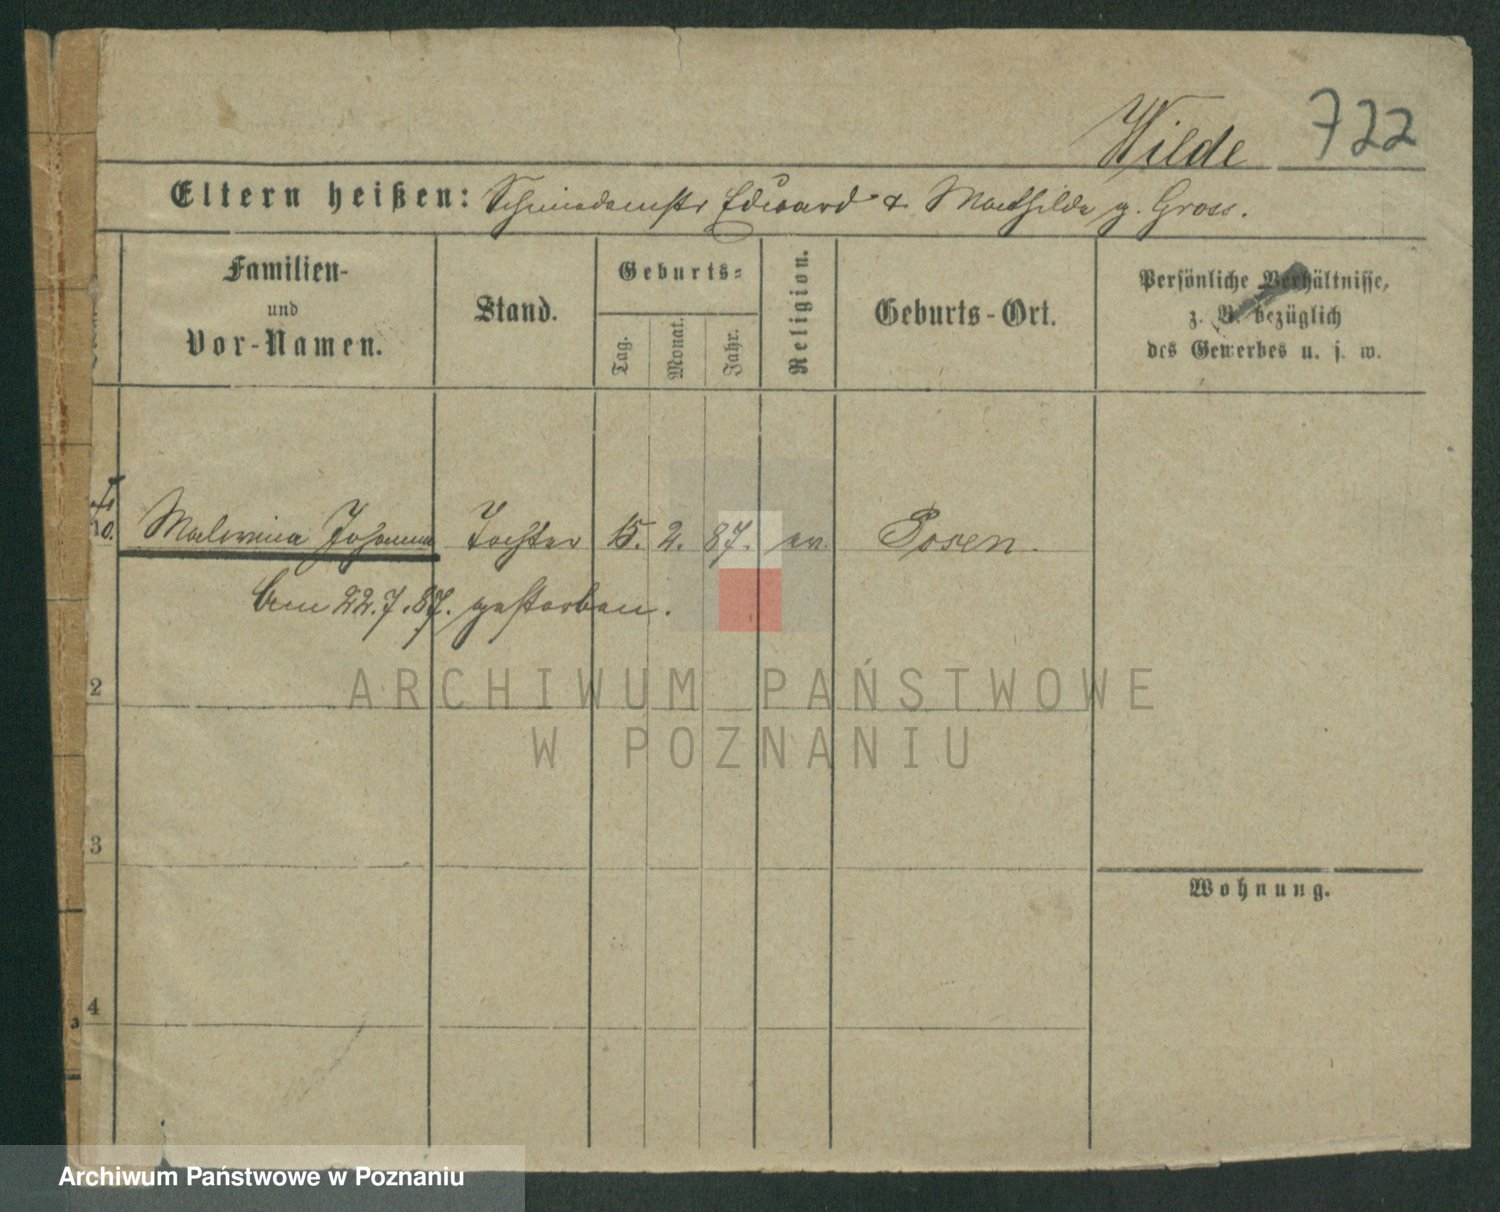 Wilde 722
Eltern heißen: Schmiedemstr Eduard & Mathilde g. Gross.
Familien-
und
Vor-Namen.
Stand.
Geburts-
Tag.
Monat.
Jahr.
Religion.
Geburts-Ort.
Persönliche Verhältnisse,
z. B. bezüglich
des Gewerbes u. s. w.
10. Malwina Johanna Tochter 15. 2. 87. ev. Posen.
Am 22.7.87. gestorben.
2
3
4
Wohnung.
ARCHIWUM PAŃSTWOWE
W POZNANIU
Archiwum Państwowe w Poznaniu